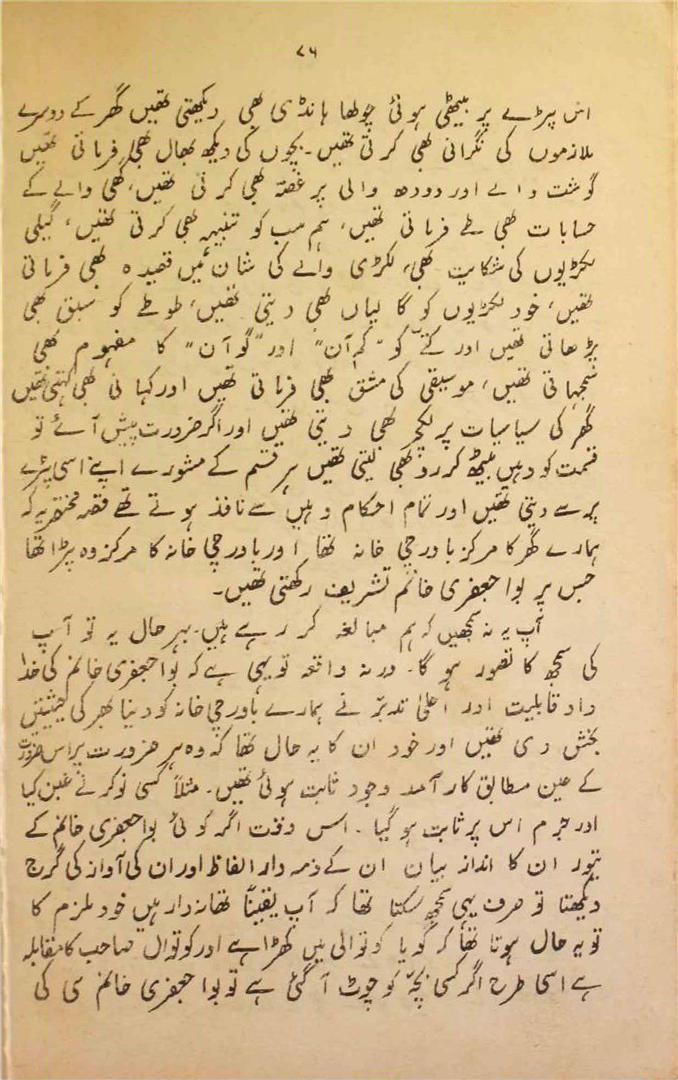 ۷۶
اس پیڑے پر بیٹھی ہوئی چولھا ہانڈی بھی دیکھتی تھیں گھر کے دوسرے
ملازموں کی نگرانی بھی کرتی تھیں۔ بچوں کی دیکھ بھال بھی فرماتی تھیں
گوشت والے اور دودھ والی پر غصہ بھی کرتی تھیں، گھی والے کے
حسابات بھی طے فرماتی تھیں، ہم سب کو تنبیہہ بھی کرتی تھیں، گیلی
لکڑیوں کی شکایت بھی، لکڑی والے کی شان میں قصیدہ بھی فرماتی
تھیں، خود لکڑیوں کو گالیاں بھی دیتی تھیں، طوطے کو سبق بھی
پڑھاتی تھیں اور کتے کو "کم آن" اور "گو آن" کا مفہوم بھی
سمجھاتی تھیں، موسیقی کی مشق بھی فرماتی تھیں اور کہانی بھی کہتی تھیں
گھر کی سیاسیات پر لکچر بھی دیتی تھیں اور اگر ضرورت پیش آئے تو
قسمت کو وہیں بیٹھ کر رو بھی لیتی تھیں ہر قسم کے مشورے اپنے اسی پیڑے
پر سے دیتی تھیں اور تمام احکام وہیں سے نافذ ہوتے تھے قصہ مختصر یہ کہ
ہمارے گھر کا مرکز باورچی خانہ تھا اور باورچی خانہ کا مرکز وہ پیڑا تھا
جس پر بوا جعفری خانم تشریف رکھتی تھیں۔
آپ یہ نہ سمجھیں کہ ہم مبالغہ کر رہے ہیں۔ بہر حال یہ تو آپ
کی سمجھ کا قصور ہو گا۔ ورنہ واقعہ تو یہی ہے کہ بوا جعفری خانم کی خدا
داد قابلیت اور اعلیٰ تدبر نے ہمارے باورچی خانہ کو دنیا بھر کی حیثیتیں
بخش دی تھیں اور خود ان کا یہ حال تھا کہ وہ ہر ضرورت پر اس ضرورت
کے عین مطابق کارآمد وجود ثابت ہوئی تھیں۔ مثلاً کسی نوکر نے غبن کیا
اور جرم اس پر ثابت ہو گیا۔ اس وقت اگر کوئی بوا جعفری خانم کے
تیور ان کا انداز بیان ان کے ذمہ دار الفاظ اور ان کی آواز کی گرج
دیکھتا تو صرف یہی سمجھ سکتا تھا کہ آپ یقیناً تھانہ دار ہیں خود ملزم کا
تو یہ حال ہوتا تھا کہ گویا کوتوالی میں کھڑا ہے اور کوتوال صاحب کا مقابلہ
ہے اسی طرح اگر کسی بچہ کو چوٹ آ گئی ہے تو بوا جعفری خانم سی کی